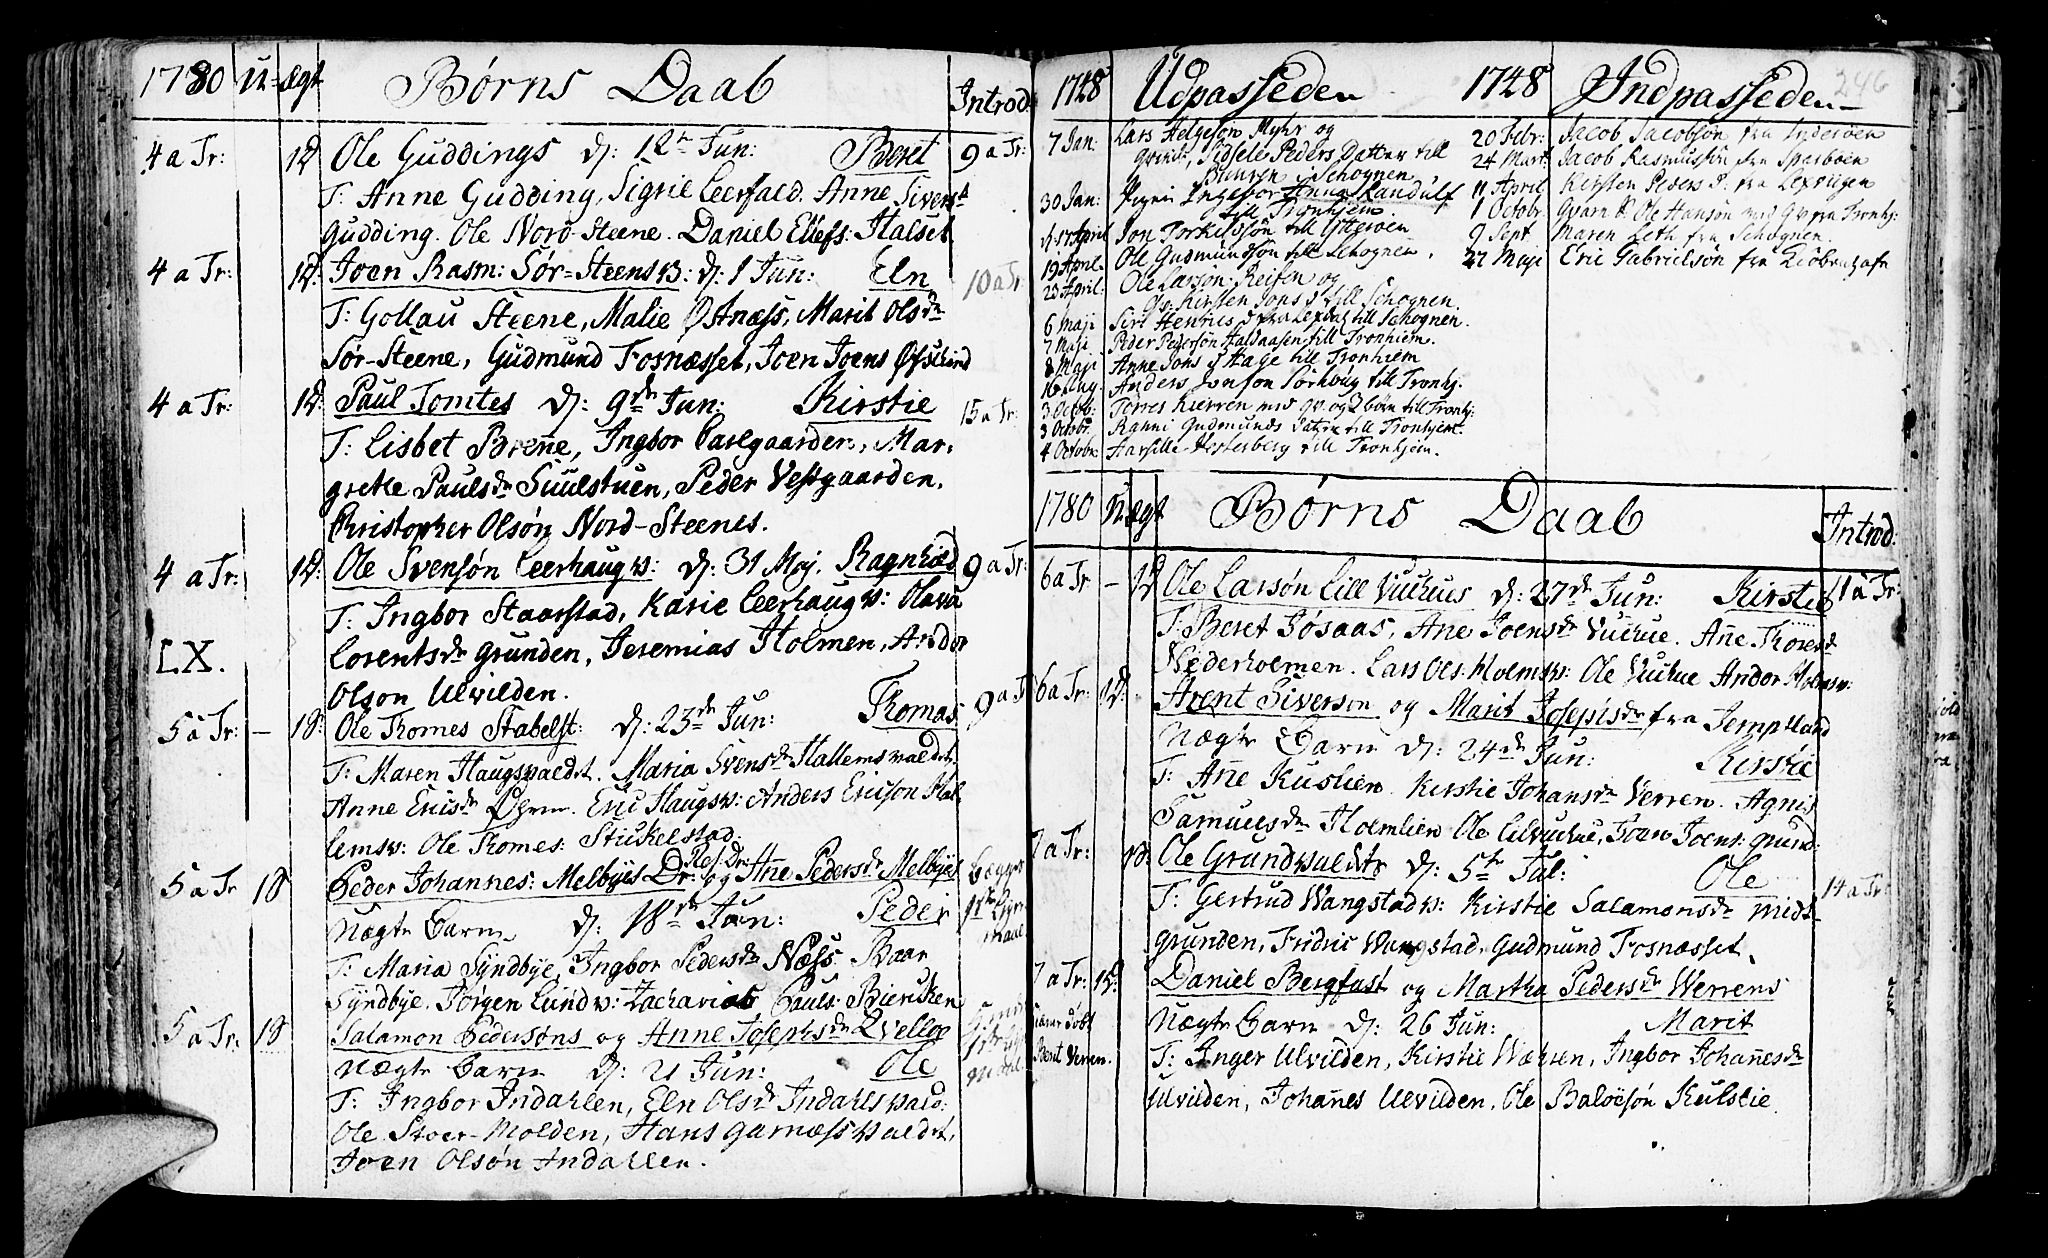 1780 U= ægt Børns Daab Introd.
4 a Tr: 1D. Ole Guddings d: 12te Jun: Beret 9 a Tr:
T: Anne Gudding, Sigrie Leerfald. Anne Siversd.
Gudding. Ole Nord-Steene. Daniel Ellefs: Halset
4 a Tr: 1D. Joen Rasm: Sør-Steensv: d: 1 Jun: Eln 10 a Tr
T: Gollau Steene, Malie Østnæss, Marit Olsdr
Sør-Steene, Gudmund Fosnæsset, Joen Joens
4 a Tr: 1D. Paul Tomtes d: 9de Jun: Kirstie 15 a Tr.
T: Lisbet Brenne, Ingbor Carlgaarden, Mar-
grethe Paulsdr Suulstuen, Peder Vestgaarden.
Christopher Olsøn Nord-Steenes.
4 a Tr: 1D. Ole Svensøn Leerhaugv: d: 31 Maj. Ragnhild 9 a Tr:
T: Ingbor Staarstad, Karie Leerhaugv: Olava
Lorentsdr Grunden, Jeremias Holmen, Andor
LX.
Olson Ulvilden.
5 a Tr: – 1S. Ole Thomes Stabelst: d: 23de Jun: Thomas 9 a Tr
T: Maren Haugsvaldet. Maria Svensdr Hallemsvaldet.
Anne Ericsdr Ørm. Eric Haugsv: Anders Ericson Hal-
lemsv: Ole Thomes: Stickelstad.
5 a Tr 1S Peder Johannes: Melbyes og Anne Pedersdr Melbyes
Uægte Barn d: 18de Jun: Peder
T: Maria Syndbye, Ingbor Pedersdr Næss Baar
Syndbye. Jørgen Lundv: Zacharias Pauls: Biercken
5 a Tr. 1S Salamon Pedersøns og Anne Josephsdr Qvelloe
Uægte Barn d: 21 Jun: Ole
T: Ingbor Indahlen, Eln Olsdr Indahlsvald:
Ole Stoer-Molden, Hans Garnæssvaldet,
Joen Olsøn Indahlen.
1748 Udpasseden 1748 Indpasseden 246
7 Jan: Lars Helgesøn Myhr og
Qvinde, Sidsele Peders Datter till
Schognen
30 Jan: Ingebor Anna Randulf
till Tronhjem.
17 April Jon Torkilssøn till Ytterøen
19 April. Ole Gudmundssøn till Schognen.
23 April: Ole Larsøn Reisen og
Qv. Kirsten Jons D till Schognen.
6 Maji Siri Henrics D fra Lexvig till Schognen.
7 Maji Peder Pedersøn Haldaasen till Tronhiem.
8 Maji Anne Jons D Hage till Tronhiem
16 Aug. Anders Jonson Sørhoug till Tronhj.
3 Octob: Torres Kierren med qv. og 2 børn till Tronhj:
3 Octobr. Ranni Gudmunds till Tronhjem.
4 Octobr Hesterberg till Tronhjem.
20 Febr: Jacob Jacobsøn fra Inderøen
24 Mart: Jacob Rasmussøn fra Sparboen
11 April Kirsten Peders D: fra Lexvigen
1 Octobr. Ole Hansøn med Qv fra Tronhj:
9 Sept. Maren Leth fra Schognen.
27 Maji Eric Gabrielsøn fra Kiøbenhafn
1780 U ægt Børns Daab Introd.
6 a Tr – 1D Ole Larsøn Lill Vuchus d: 27de Jun: Kirstie 11 a Tr:
T: Beret Jøsaas, Ane Joensdr Vuchue. Anne Thoresdr
Nederholmen. Lars Ols: Holmsv: Ole Vuchue Andor Holmsv:
6 a Tr: 1D: Arent Siverson og Marit Josephsdr fra Jemptland
Uægte Barn d: 24de Jun: Kirstie
T: Anne Kuslien. Kirstie Johansdr Verren. Agnis
Samuelsdr Holmlien Ole Lilvuchue, Joen Joens: Grund:
7 a Tr: 1D. Ole Grundvaldts d: 5te Jul: Ole 14 a Tr
T: Gertrud Wangstadv: Kirstie Salamonsdr Midt-
grunden, Fridric Wangstad. Gudmund Fosnæsset.
7 a Tr: 1D. Daniel Bergfast og Martha Pedersdr Werrens
Uægte Barn d: 26 Jun: Marit
Beret Verren. T: Inger Ulvilden, Kirstie Wæhsen, Ingbor Johannesdr
Ulvilden, Johannes Ulvilden. Ole Baloesøn Kulslie.